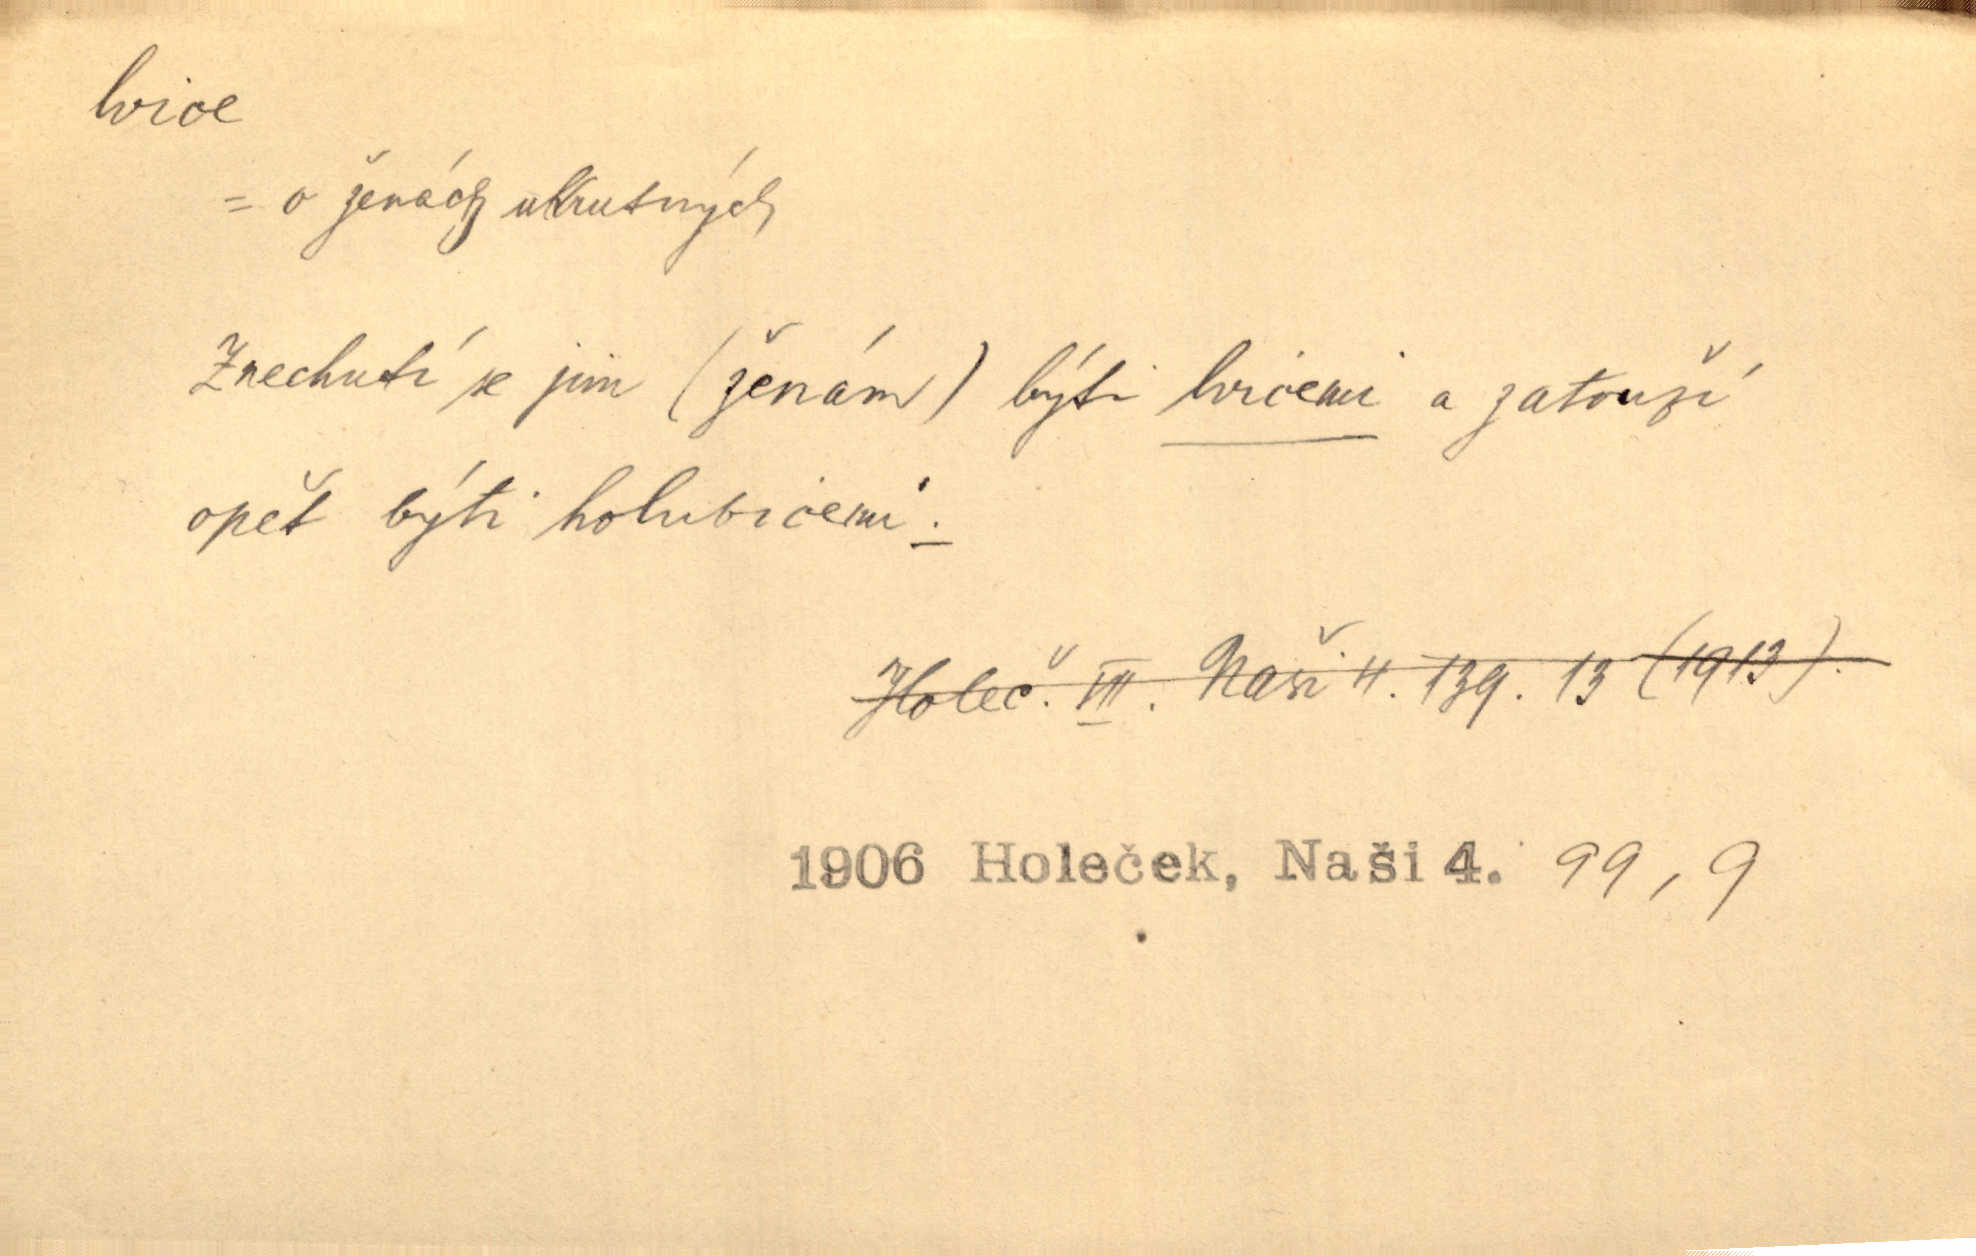 lvice
= o ženách ukrutných
Znechutí se jim (ženám) býti lvicemi a zatouží
opět býti holubicemi.
Holeč. VIII. Naši 4. 139. 13 (1913).
1906 Holeček, Naši 4. 99, 9